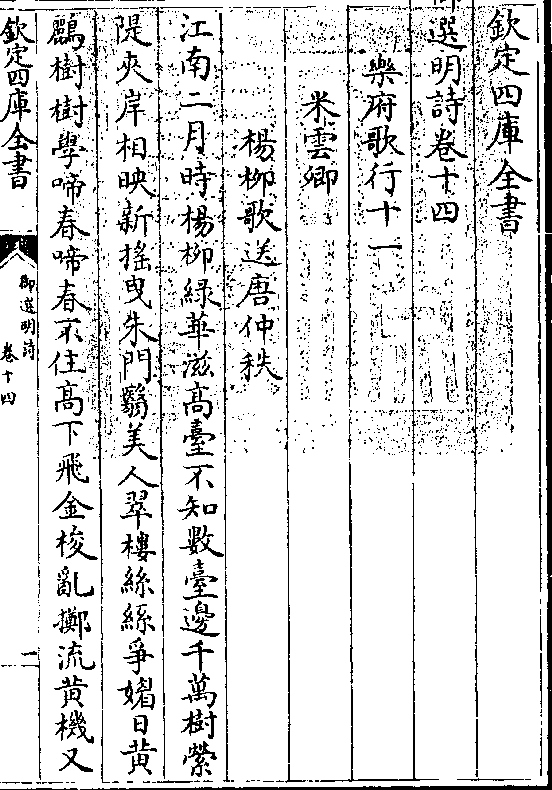 欽定四庫全書
選明詩卷十四
樂府歌行十一
米雲卿
楊柳歌送唐仲秩
江南二月時楊柳綠華滋高臺不知數臺邊千萬樹縈
隄夾岸相映新搖曳朱門翳美人翠樓絲絲爭媚日黄
鸝樹樹學啼春啼春不住高下飛金梭亂擲流黄機又
欽定四庫全書
御選明詩
卷十四
一